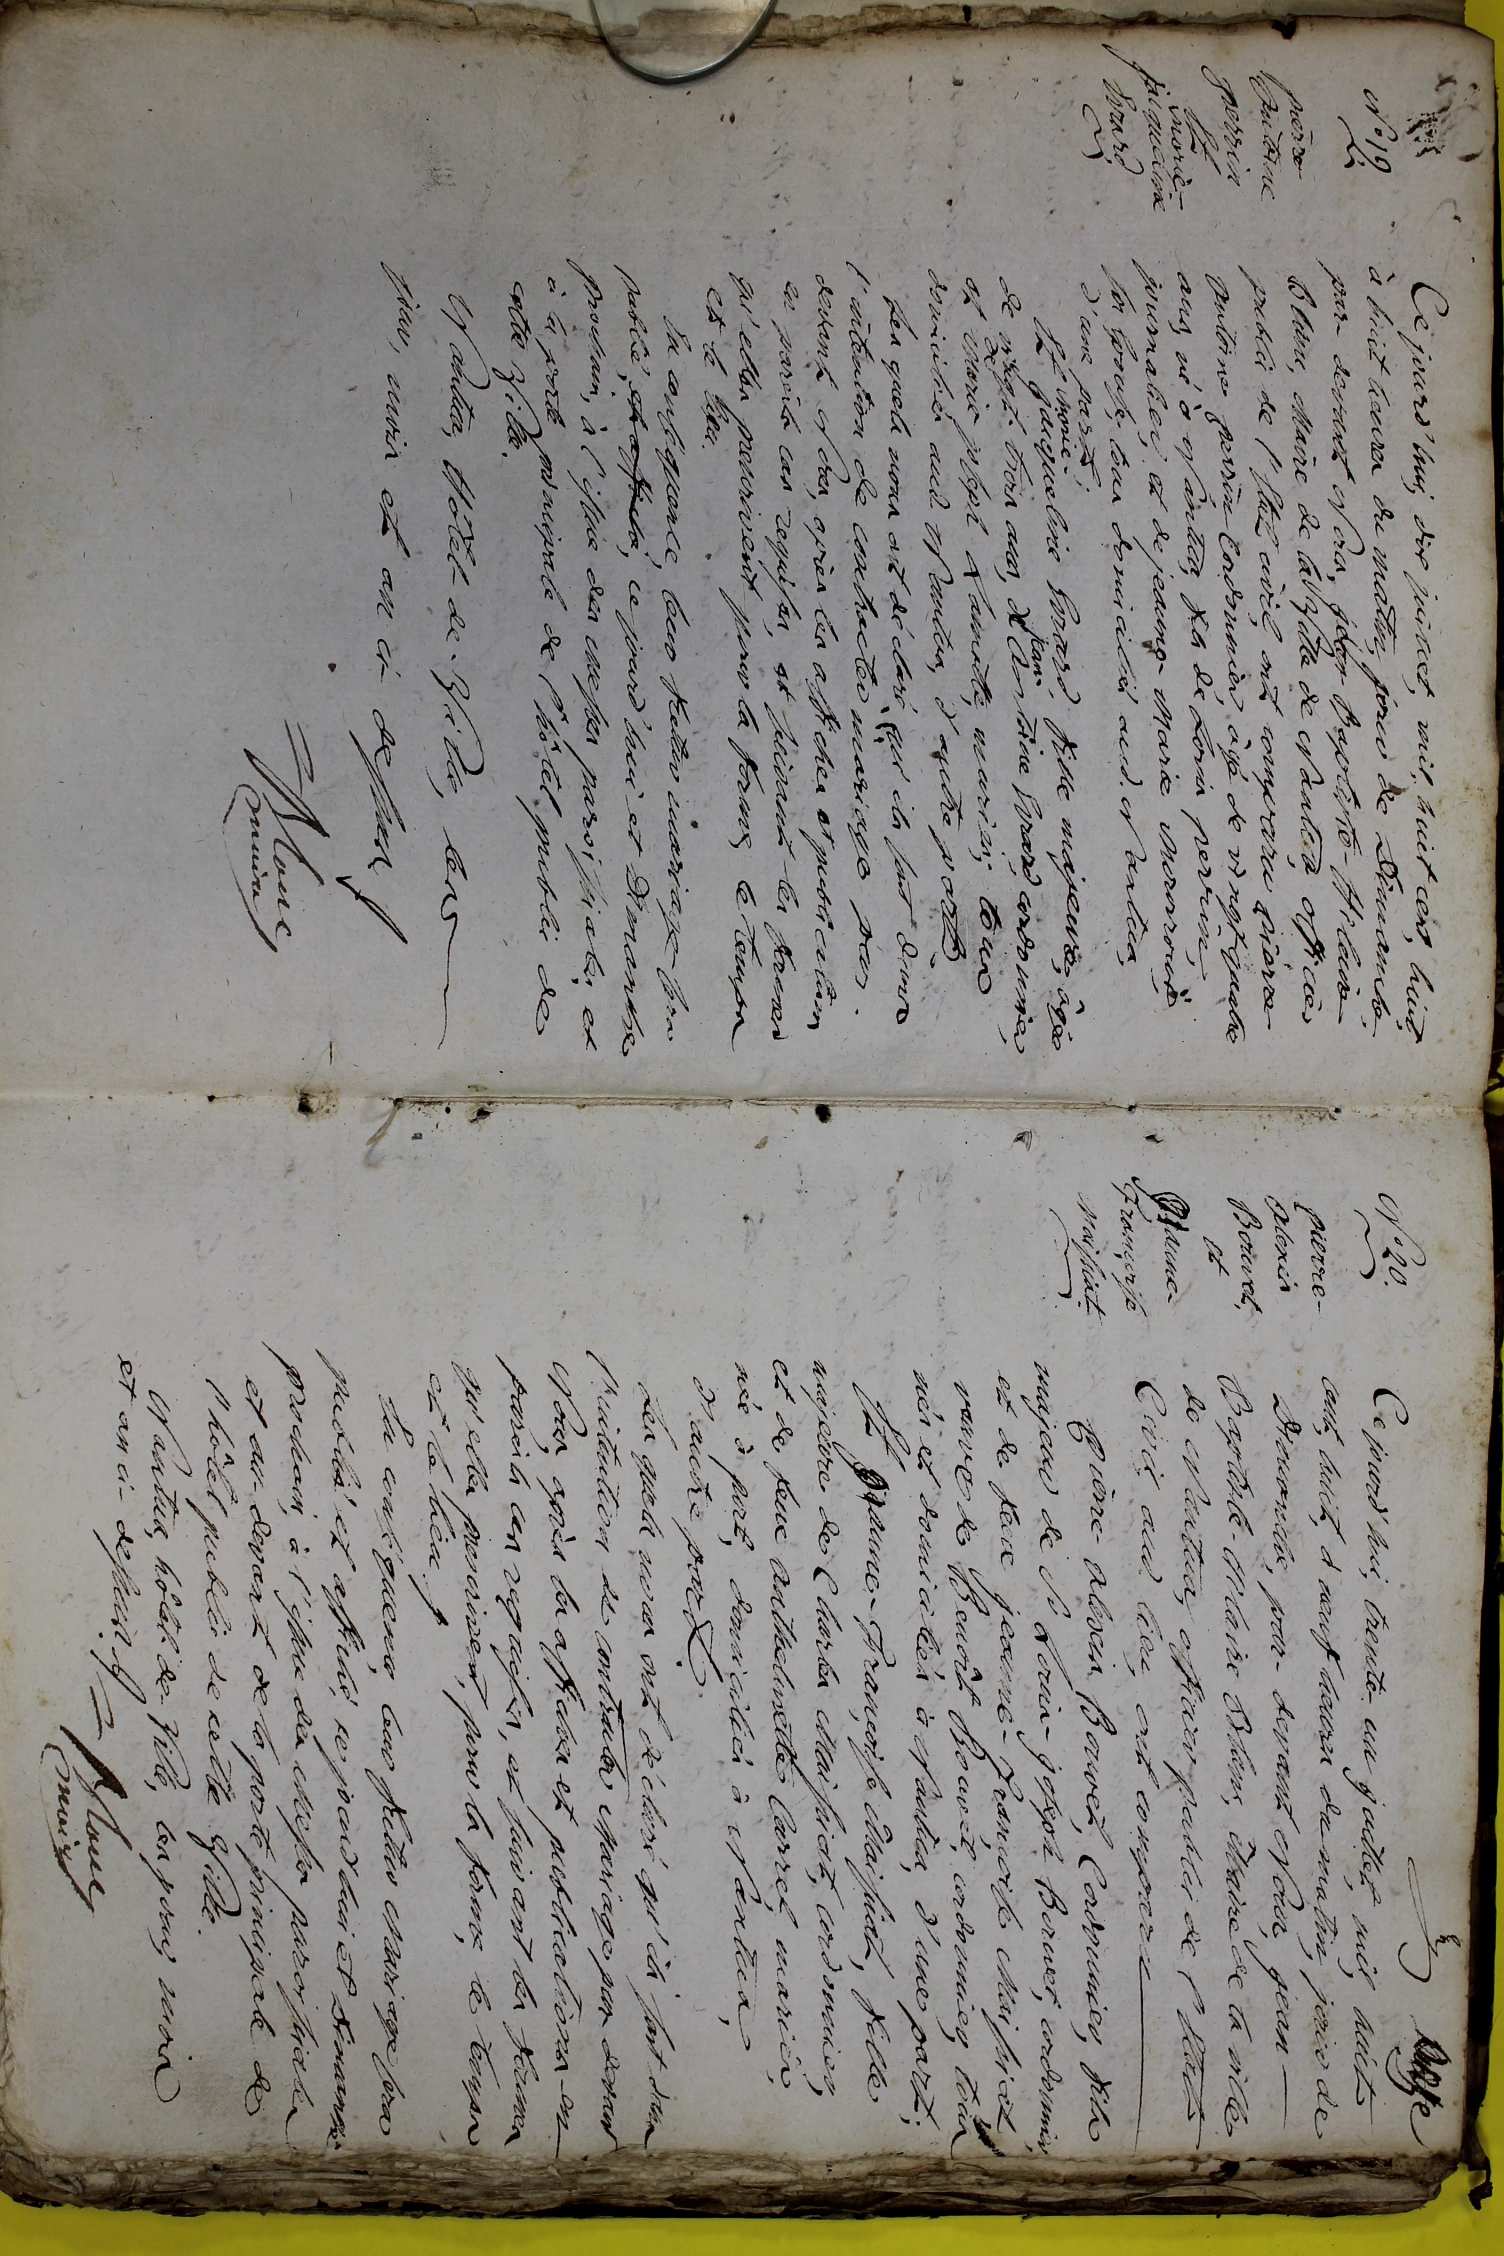 N.° 19
pierre
Antoine
perrin
Et
marie-
jacqueline
Evrard
Ce jourd'hui, dix juillet, mil huit cent huit,
à huit heures du matin, jour de Dimanche,
par devant Nous, jean-Baptiste-hilaire
Blanc, Maire de la Ville de Nantua, officier
public de l'Etat civil, ont comparu pierre
antoine perrin Cordonnier, âgé de vingt quatre
ans, né à Nantua, fils de Louis perrin,
journalier, et de jeanne-Marie
son épouse, tous domiciliés aud. Nantua,
d'une part;
Et marie-
jacqueline Evrard fille majeure, âgée
de vingt-trois ans, de jean-
Antoine Evrard, cordonnier,
et de Marie josept mariés; tous
domiciliés aud. Nantua, d'autre part.
Les quels nous ont déclaré qu'ils sont dans
l'intention de contracter mariage par-
devant Nous, après les affiches et publications
en pareils cas requises, et suivant les formes
qu'elles prescrivent pour la forme, le temps
et le lieu.
En conséquence, leur futur mariage sera
publié, et affiché, ce jourd'hui et Dimanche
prochain, à l'issue des messes paroissiales, et
à la porte principale de l'hôtel public de
cette Ville.
Nantua, Hôtel-de-Ville, les
jour, mois et an ci-dessus
Blanc
maire
N.° 20.
pierre-
alexis
Bouvet,
et
jeanne-
Françoise
maissiat.
Ce jourd'hui, trente un juillet, mil huit
cent huit, à neuf heures du matin, jour de
Dimanche, par-devant Nous, jean-
Baptiste-hilaire Blanc, Maire de la ville
de Nantua, officier public de l'Etat
Civil aud. lieu, ont comparu
Pierre-alexis Bouvet, Cordonnier, fils
majeur de Louis-joseph Bouvet, cordonnier,
et de feue jeanne-Françoise Maissiat,
veuve de Benoît Bouvet, cordonnier, tous
nés et domiciliés à Nantua, d'une part;
Et jeanne-Françoise Maissiat, fille
majeure de Charles Maissiat, cordonnier,
et de feue anthelmette Carrel, mariés,
née à port, domiciliés à Nantua,
d'autre part.
Les quels nous ont déclaré qu'ils sont dans
l'intention de contracter mariage par devant
Nous, après les affiches et publications en
pareils cas requises, et suivant les formes
qu'elles prescrivent, pour la forme, le temps
et le lieu.
En conséquence, leur futur Mariage sera
publié et affiché, ce jourd'hui et Dimanche
prochain, à l'issue des messes paroissiales
et au-devant de la porte principale de
l'hôtel public de cette Ville.
Nantua, hôtel-de-Ville, les jour, mois
et an ci-dessus.
Blanc
maire